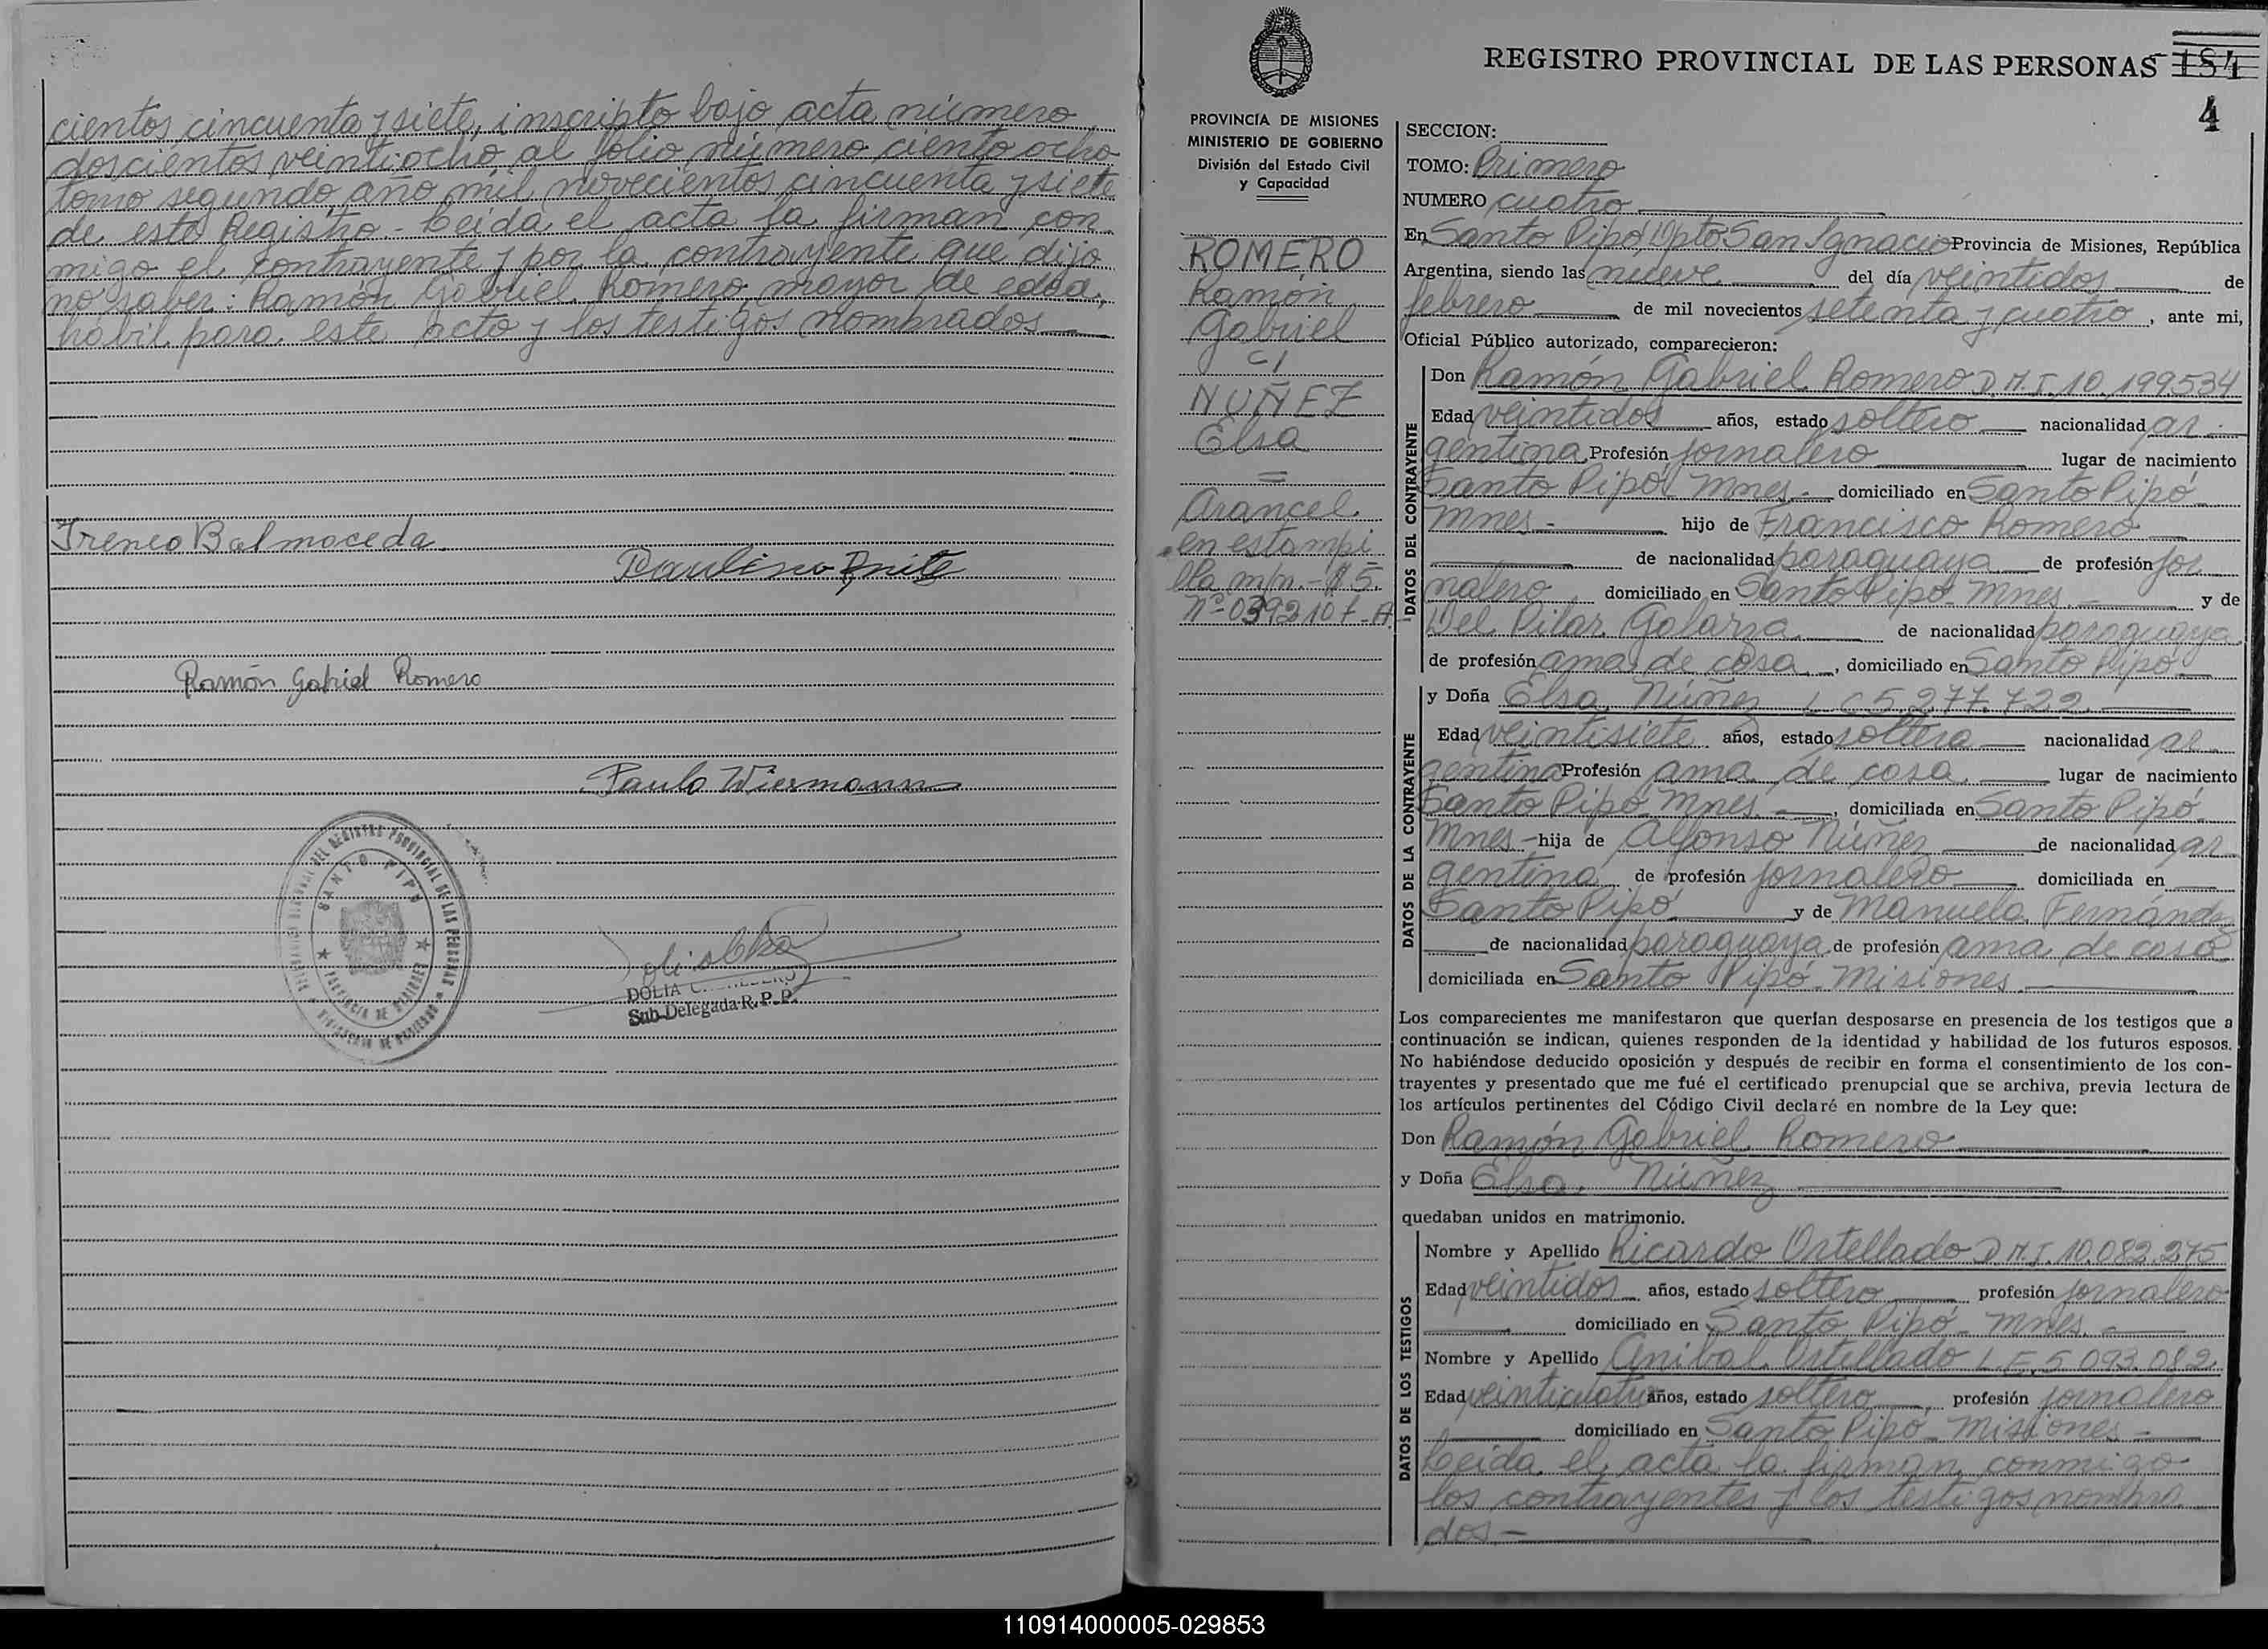 cientos cincuenta y siete, inscripto bajo acta número
doscientos veintiocho al folio número ciento ocho
tomo segundo, año mil novecientos cincuenta y siete
de este Registro.- Leida el acta la firman con-
migo el contrayente y por la contrayente que dijo
no saber: Ramón Gabriel Romero, mayor de edad,
hábil para este acto y los testigos nombrados
Ireneo Balmaceda
Paulino
Ramón Gabriel Romero
Paulo Wiermann
SANTO PIPO
PROVINCIA DE MISIONES
DOLIA C.
Sub-Delegada R. P. P.
REGISTRO PROVINCIAL DE LAS PERSONAS 184
4
PROVINCIA DE MISIONES
MINISTERIO DE GOBIERNO
División del Estado Civil
y Capacidad
ROMERO
Ramón
Gabriel
c/
NUÑEZ
Elsa
=
Arancel
en estampi
lla m/n.-$5.
Nº 0392107-A
SECCION:
TOMO: Primero
NUMERO cuatro
En Santo Pipó, Dpto San Ignacio Provincia de Misiones, República
Argentina, siendo las nueve del día veintidos de
febrero de mil novecientos setenta y cuatro, ante mi,
Oficial Público autorizado, comparecieron:
DATOS DEL CONTRAYENTE
Don Ramón Gabriel Romero D.N.I. 10.199534
Edad veintidos años, estado soltero nacionalidad ar-
gentina Profesión jornalero lugar de nacimiento
Santo Pipó Mnes.- domiciliado en Santo Pipó
Mnes.- hijo de Francisco Romero
de nacionalidad paraguaya de profesión jor
nalero domiciliado en Santo Pipó- Mnes. y de
Del Pilar Galarza de nacionalidad paraguaya
de profesión ama de casa, domiciliado en Santo Pipó
DATOS DE LA CONTRAYENTE
y Doña Elsa Núñez L C 5.277.722.
Edad veintisiete años, estado soltera nacionalidad ar
gentina Profesión ama de casa lugar de nacimiento
Santo Pipó Mnes.-, domiciliada en Santo Pipó
Mnes.- hija de Alfonso Núñez de nacionalidad ar
gentina de profesión jornalero domiciliada en
Santo Pipó y de Manuela Fernández
de nacionalidad paraguaya de profesión ama de casa
domiciliada en Santo Pipó- Misiones.
Los comparecientes me manifestaron que querían desposarse en presencia de los testigos que a
continuación se indican, quienes responden de la identidad y habilidad de los futuros esposos.
No habiéndose deducido oposición y después de recibir en forma el consentimiento de los con-
trayentes y presentado que me fué el certificado prenupcial que se archiva, previa lectura de
los artículos pertinentes del Código Civil declaré en nombre de la Ley que:
Don Ramón Gabriel Romero
y Doña Elsa Núñez
quedaban unidos en matrimonio.
DATOS DE LOS TESTIGOS
Nombre y Apellido Ricardo Ortellado D.N.I. 10.082.275
Edad veintidos años, estado soltero profesión jornalero
domiciliado en Santo Pipó- Mnes.-
Nombre y Apellido Anibal Ortellado L.E. 5 093.082
Edad veinticuatro años, estado soltero, profesión jornalero
domiciliado en Santo Pipó- Misiones.-
Leida el acta la firman conmigo
los contrayentes y los testigos nombra
dos.-
110914000005-029853